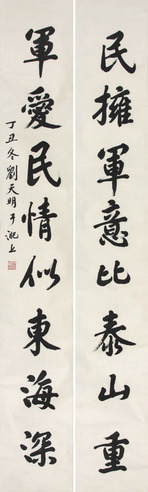 民擁軍意比泰山重
軍愛民情似東海深
丁丑冬劉天明于沘上